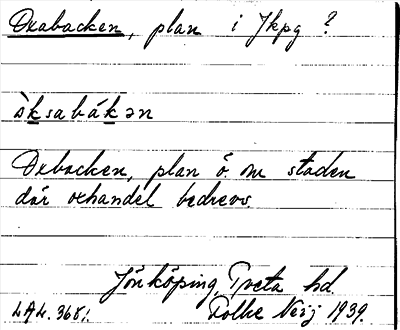 Oxabacken, plan i Jkpg ?
òksabákən
Oxbacken, plan ö. om staden
där oxhandel bedrevs.
Jönköping, Tveta hd
LAL. 365: Folke 1939.